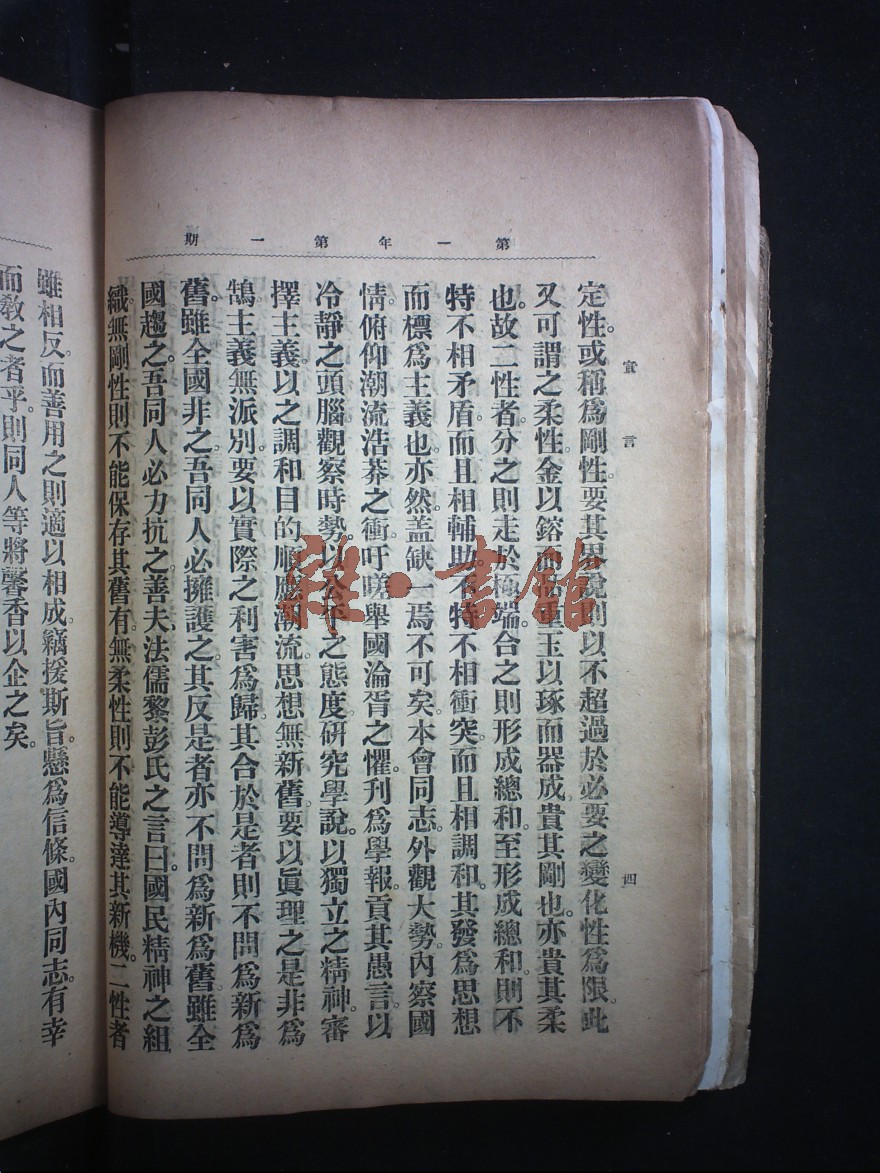 第一年第一期
宣言
四
定性。或稱爲剛性。要其界說則以不超過於必要之變化性爲限。此
又可謂之柔性。金以鎔而重玉以琢而器成。貴其剛也。亦貴其柔
也。故二性者分之則走於極端。合之則形成總和。至形成總和。則不
特不相矛盾。而且相輔助。不特不相衝突。而且相調和。其發爲思想
而標爲主義也。亦然。盖缺一焉不可矣。本會同志。外觀大勢。內察國
情。俯仰潮流浩莽之衝。吁嗟舉國淪胥之懼。刊爲學報。貢其愚言。以
冷靜之頭腦觀察時勢。以公平之態度研究學說。以獨立之精神審
擇主義。以之調和目的順應潮流。思想無新舊。要以眞理之是非爲
鵠。主義無派別。要以實際之利害爲歸。其合於是者則不問爲新爲
舊。雖全國非之。吾同人必擁護之。其反是者亦不問爲新爲舊。雖全
國趨之。吾同人必力抗之。善夫法儒黎彭氏之言曰。國民精神之組
織無剛性則不能保存其舊有。無柔性則不能導達其新機。二性者
雖相反。而善用之則適以相成。竊援斯旨。懸爲信條。國內同志。有幸
而敎之者乎。則同人等將馨香以企之矣。
雜·書館